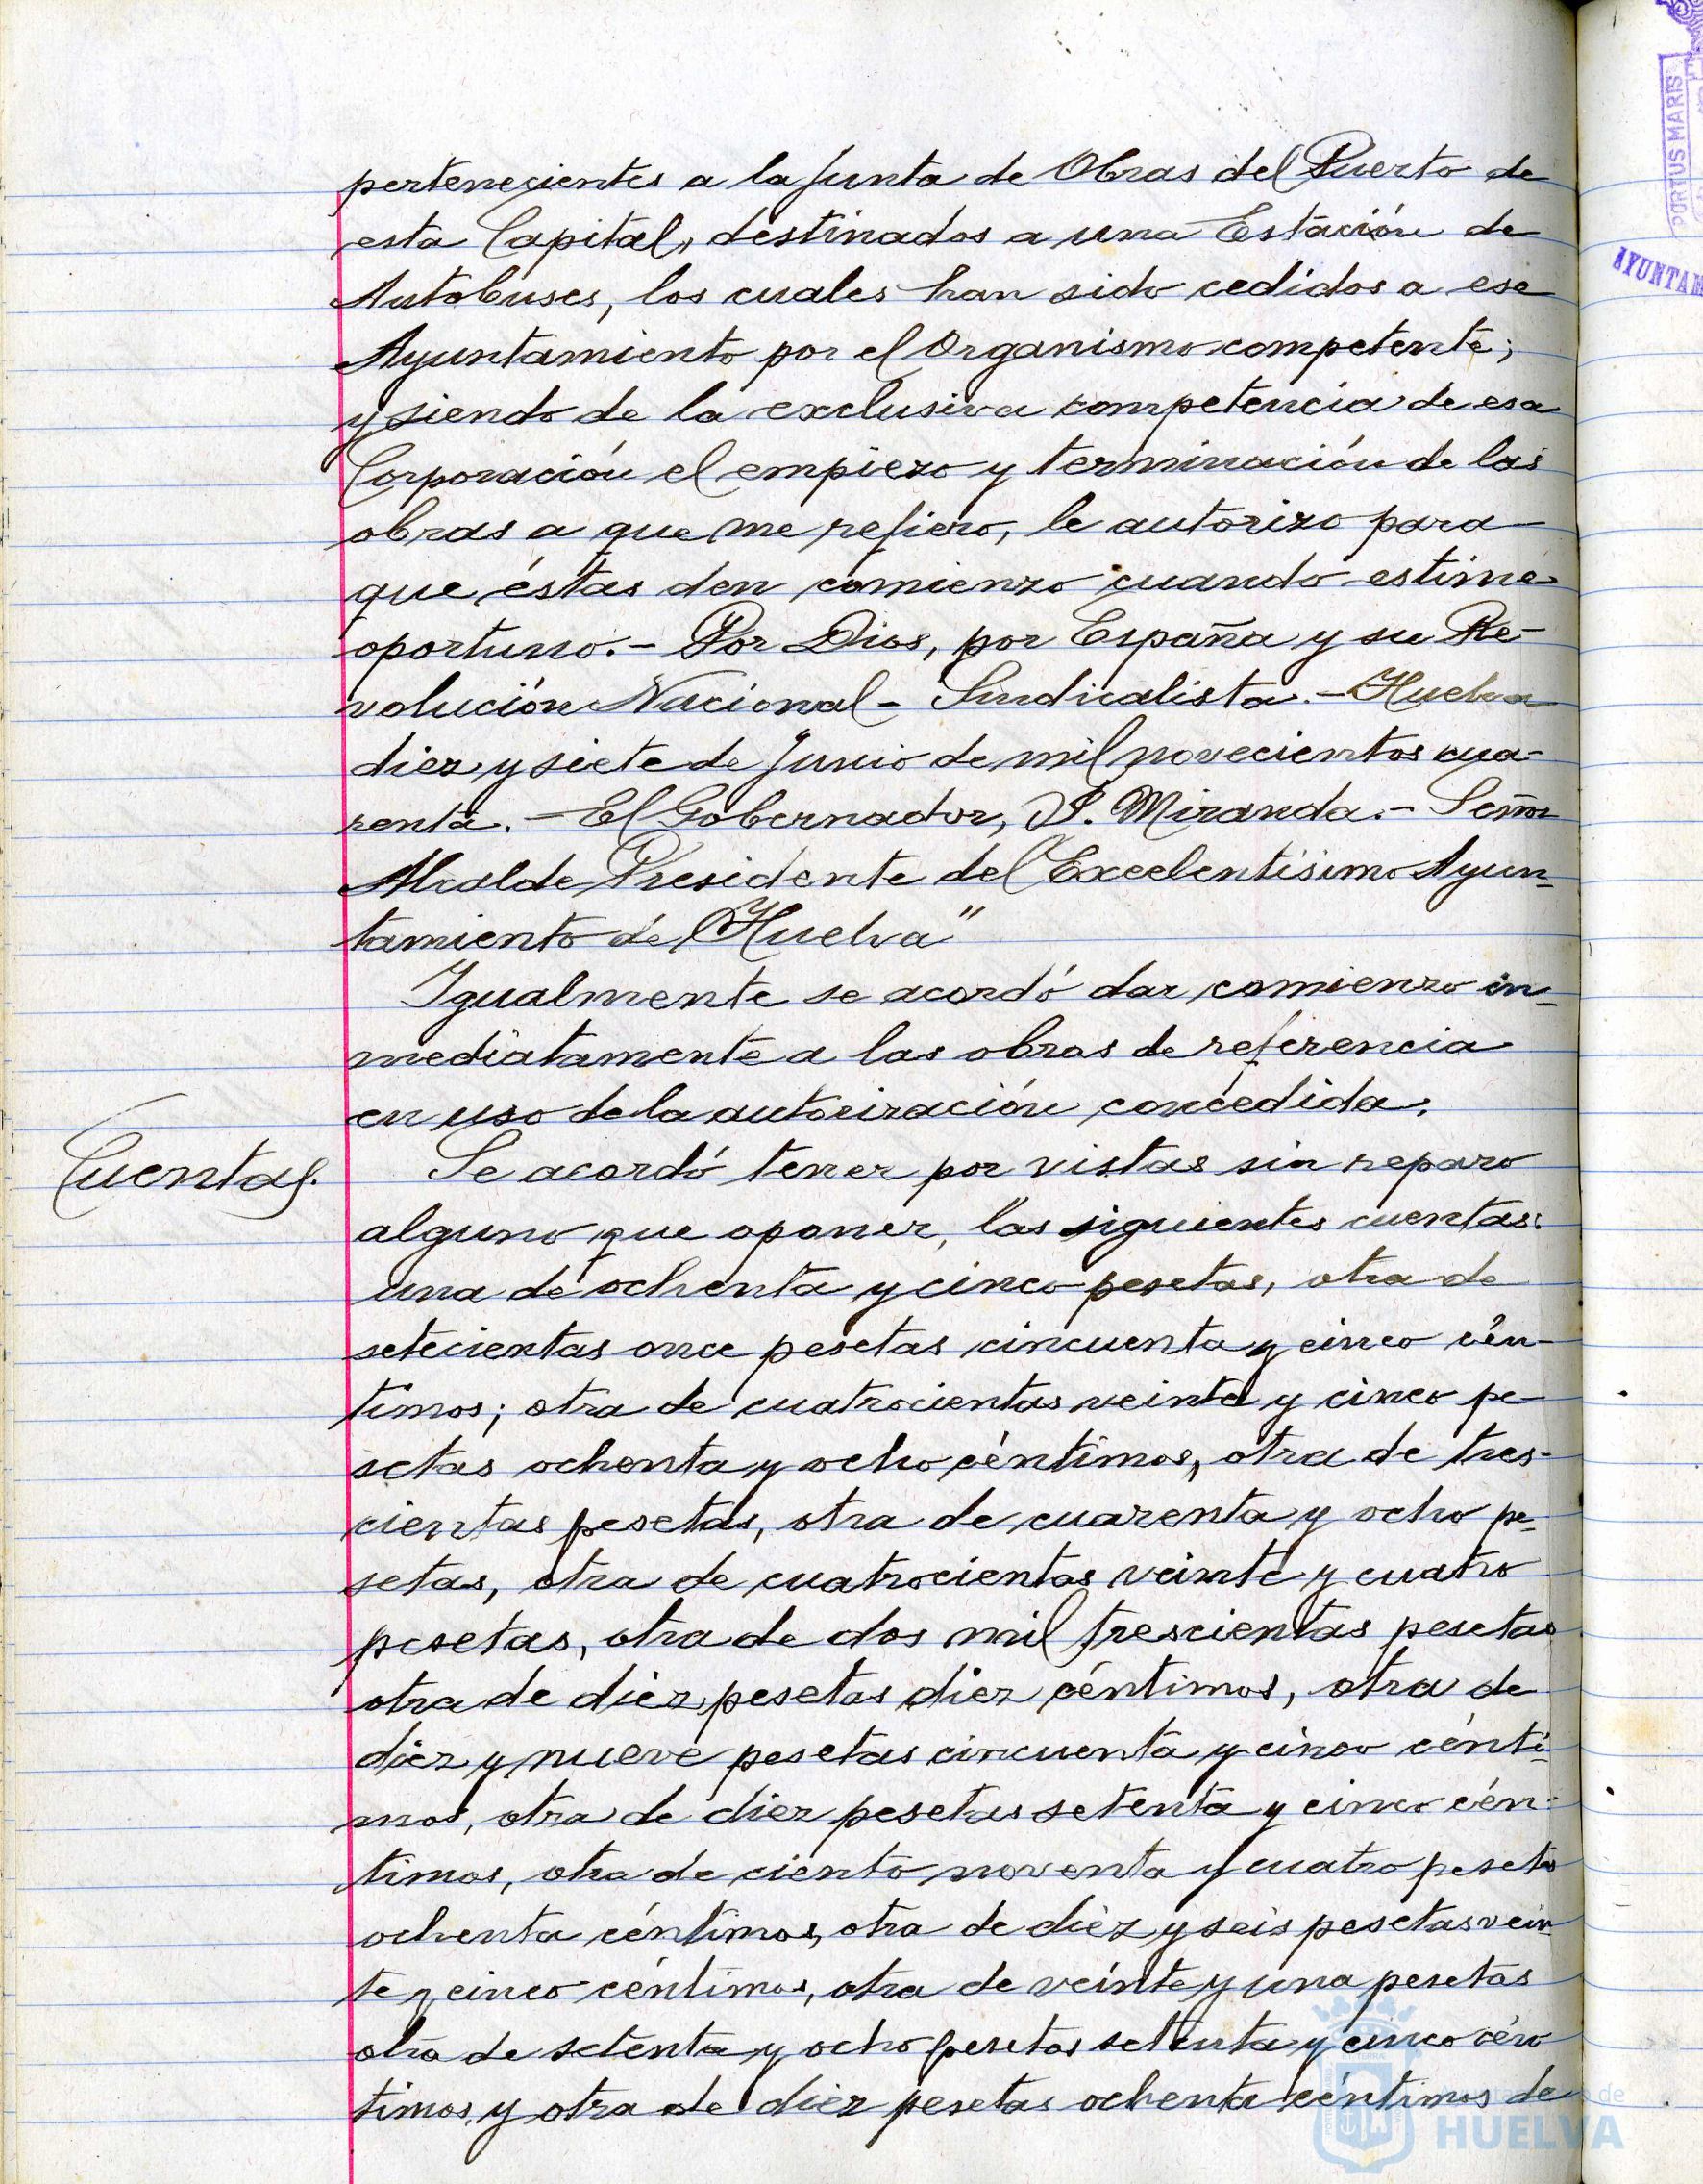 pertenecientes a la Junta de Obras del Puerto de
esta Capital, destinados a una Estación de
Autobuses, los cuales han sido cedidos a ese
Ayuntamiento por el Organismo competente;
y siendo de la exclusiva competencia de esa
Corporación el empiezo y terminación de las
obras a que me refiero, le autorizo para
que éstas den comienzo cuando estime
oportuno.- Por Dios, por España y su Re-
volución Nacional-Sindicalista.- Huelva
diez y siete de Junio de mil novecientos cua-
renta.- El Gobernador, P. Miranda.- Señor
Alcalde Presidente del Excelentísimo Ayun-
tamiento de Huelva"
Igualmente se acordó dar comienzo in-
mediatamente a las obras de referencia
en uso de la autorización concedida.
Cuentas.
Se acordó tener por vistas sin reparo
alguno que oponer, las siguientes cuentas:
una de ochenta y cinco pesetas, otra de
setecientas once pesetas cincuenta y cinco cén-
timos; otra de cuatrocientas veinte y cinco pe-
setas ochenta y ocho céntimos, otra de tres-
cientas pesetas, otra de cuarenta y ocho pe-
setas, otra de cuatrocientas veinte y cuatro
pesetas, otra de dos mil trescientas pesetas
otra de diez pesetas diez céntimos, otra de
diez y nueve pesetas cincuenta y cinco cénti-
mos, otra de diez pesetas setenta y cinco cén-
timos, otra de ciento noventa y cuatro pesetas
ochenta céntimos, otra de diez y seis pesetas vein-
te y cinco céntimos, otra de veinte y una pesetas
otra de setenta y ocho pesetas setenta y cinco cén-
timos, y otra de diez pesetas ochenta céntimos de
PORTUS MARIS
AYUNTAM
HUELVA